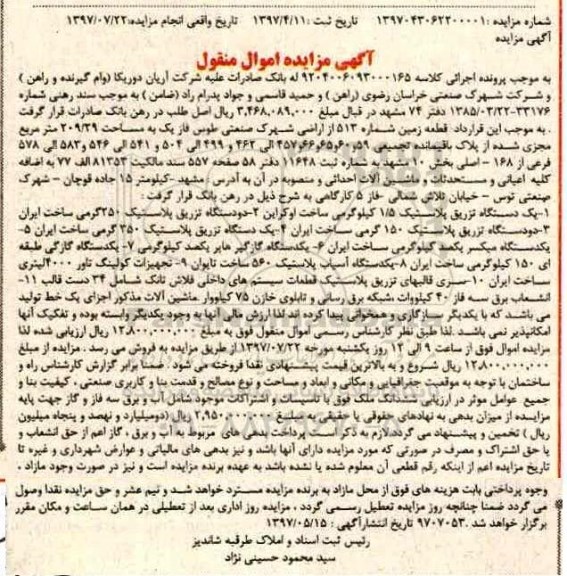 شماره مزایده :۱۳۹۷۰۴۳۰۶۲۲۰۰۰۰۱ تاریخ ثبت :۱۳۹۷/۴/۱۱ تاریخ واقعی انجام مزایده:۱۳۹۷/۰۷/۲۲
آگهی مزایده
آگهی مزایده اموال منقول
به موجب پرونده اجرائی کلاسه ۹۲۰۴۰۰۶۰۹۳۰۰۰۱۶۵ له بانک صادرات علیه شرکت آریان دوریکا (وام گیرنده و راهن )
و شرکت شهرک صنعتی خراسان رضوی (راهن ) و حمید قاسمی و جواد پدرام راد (ضامن ) به موجب سند رهنی شماره
۱۳۸۵/۰۳/۲۲-۳۳۱۷۶ دفتر ۷۴ مشهد در قبال مبلغ ۳,۴۶۸,۰۸۹,۰۰۰ ریال اصل طلب در رهن بانک صادرات قرار گرفت
. به موجب این قرارداد قطعه زمین شماره ۵۱۳ از اراضی شهرک صنعتی طوس فاز یک به مساحت ۲۰۹/۳۹ متر مربع
مجزی شده از پلاک باقیمانده تجمیعی ۵۹و۶۰و۶۵و۶۶و۴۵۷ الی ۴۶۲ و ۴۹۹ الی ۵۰۴ و ۵۴۱ الی ۵۴۶ و۵۸۳ الی ۵۷۸
فرعی از ۱۶۸ - اصلی بخش ۱۰ مشهد به شماره ثبت ۱۱۶۴۸ دفتر ۵۸ صفحه ۵۵۷ سند مالکیت ۸۱۳۵۳ الف ۷۷ به اضافه
کلیه اعیانی و مستحدثات و ماشین آلات احداثی و منصوبه در آن به آدرس : مشهد -کیلومتر ۱۵ جاده قوچان - شهرک
صنعتی توس - خیابان تلاش شمالی -فاز ۵ کارگاهی به شرح ذیل در رهن بانک قرار گرفت :
۱-یک دستگاه تزریق پلاستیک ۱/۵ کیلوگرمی ساخت اوکراین ۲-دودستگاه تزریق پلاستیک ۲۵۰گرمی ساخت ایران
۳-دودستگاه تزریق پلاستیک ۱۵۰ گرمی ساخت ایران ۴-یک دستگاه تزریق پلاستیک ۳۵۰ گرمی ساخت ایران ۵-
یکدستگاه میکسر یکصد کیلوگرمی ساخت ایران ۶- یکدستگاه گازگیر هایر یکصد کیلوگرمی ۷- یکدستگاه گازگی طبقه
ای ۱۵۰ کیلوگرمی ساخت ایران ۸-یکدستگاه آسیاب پلاستیک ۵۶۰ ساخت تایوان ۹- تجهیزات کولینگ تاور ۴۰۰۰لیتری
ساخت ایران ۱۰-سری قالبهای تزریق پلاستیک قطعات سیستم های داخلی فلاش تانک شامل ۳۴ دست قالب ۱۱-
انشعاب برق سه فاز ۴۰ کیلووات ،شبکه برق رسانی و تابلوی خازن ۷۵ کیلووار .ماشین آلات مذکور اجزای یک خط تولید
می باشد که با یکدیگر سازگاری و همخوانی پیدا کرده اند لذا ارزش مالی آنها به وجود یکدیگر وابسته بوده و تفکیک آنها
امکانپذیر نمی باشد .لذا طبق نظر کارشناس رسمی اموال منقول فوق به مبلغ ۱۲,۸۰۰,۰۰۰,۰۰۰ ریال ارزیابی شده لذا
مزایده اموال فوق از ساعت ۹ الی ۱۲ روز یکشنبه مورخه ۱۳۹۷/۰۷/۲۲از طریق مزایده به فروش می رسد . مزایده از مبلغ
۱۲,۸۰۰,۰۰۰,۰۰۰ ریال شروع و به بالاترین قیمت پیشنهادی نقدا فروخته می شود . ضمنا برابر گزارش کارشناس راه و
ساختمان با توجه به موقعیت جغرافیایی و مکانی و ابعاد و مساحت و نوع مصالح و قدمت بنا و کاربری صنعتی ، کیفیت بنا و
جمیع عوامل موثر در ارزیابی ششدانگ ملک فوق با تاسیسات و اشتراکات موجود شامل آب و برق سه فاز و گاز جهت پایه
مزایده از میزان بدهی به نهادهای حقوقی یا حقیقی به مبلغ ۲,۹۵۰,۰۰۰,۰۰۰ ریال (دومیلیارد و نهصد و پنجاه میلیون
ریال ) تخمین و پیشنهاد می گردد.لازم به ذکر است پرداخت بدهی های مربوط به آب و برق ، گاز اعم از حق انشعاب و
یا حق اشتراک و مصرف در صورتی که مورد مزایده دارای آنها باشد و نیز بدهی های مالیاتی و عوارض شهرداری و غیره تا
تاریخ مزایده اعم از اینکه رقم قطعی آن معلوم شده یا نشده باشد به عهده برنده مزایده است و نیز در صورت وجود مازاد ،
وجوه پرداختی بابت هزینه های فوق از محل مازاد به برنده مزایده مسترد خواهد شد و نیم عشر و حق مزایده نقدا وصول
می گردد ضمنا چنانچه روز مزایده تعطیل رسمی گردد ، مزایده روز اداری بعد از تعطیلی در همان ساعت و مکان مقرر
برگزار خواهد شد .۹۷۰۷۰۵۳ تاریخ انتشارآگهی : ۱۳۹۷/۰۵/۱۵
رئیس ثبت اسناد و املاک طرقبه شاندیز
سید محمود حسینی نژاد